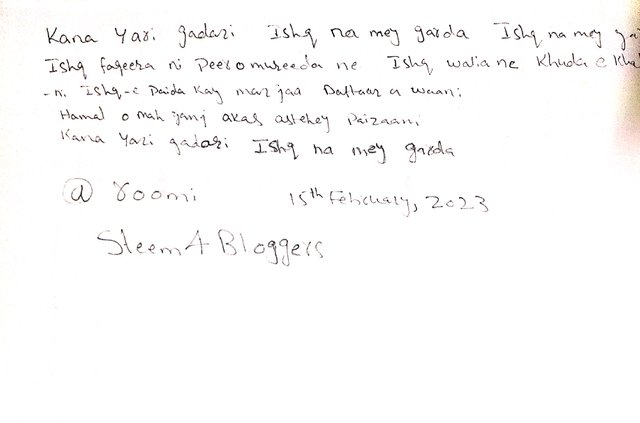 Kana Yari gadari Ishq na mey garda Ishq na mey
Ishq faqeera ni Peer o mureeda ne Ishq walia ne Khuda e
-ni Ishq-e Paida Kay mar jaa Daftaar a waani
Hamal o mah ganj akas astehey Paizaani
Kana Yari gadari Ishq na mey garda
@ roomi 15th February, 2023
Steem4Bloggers